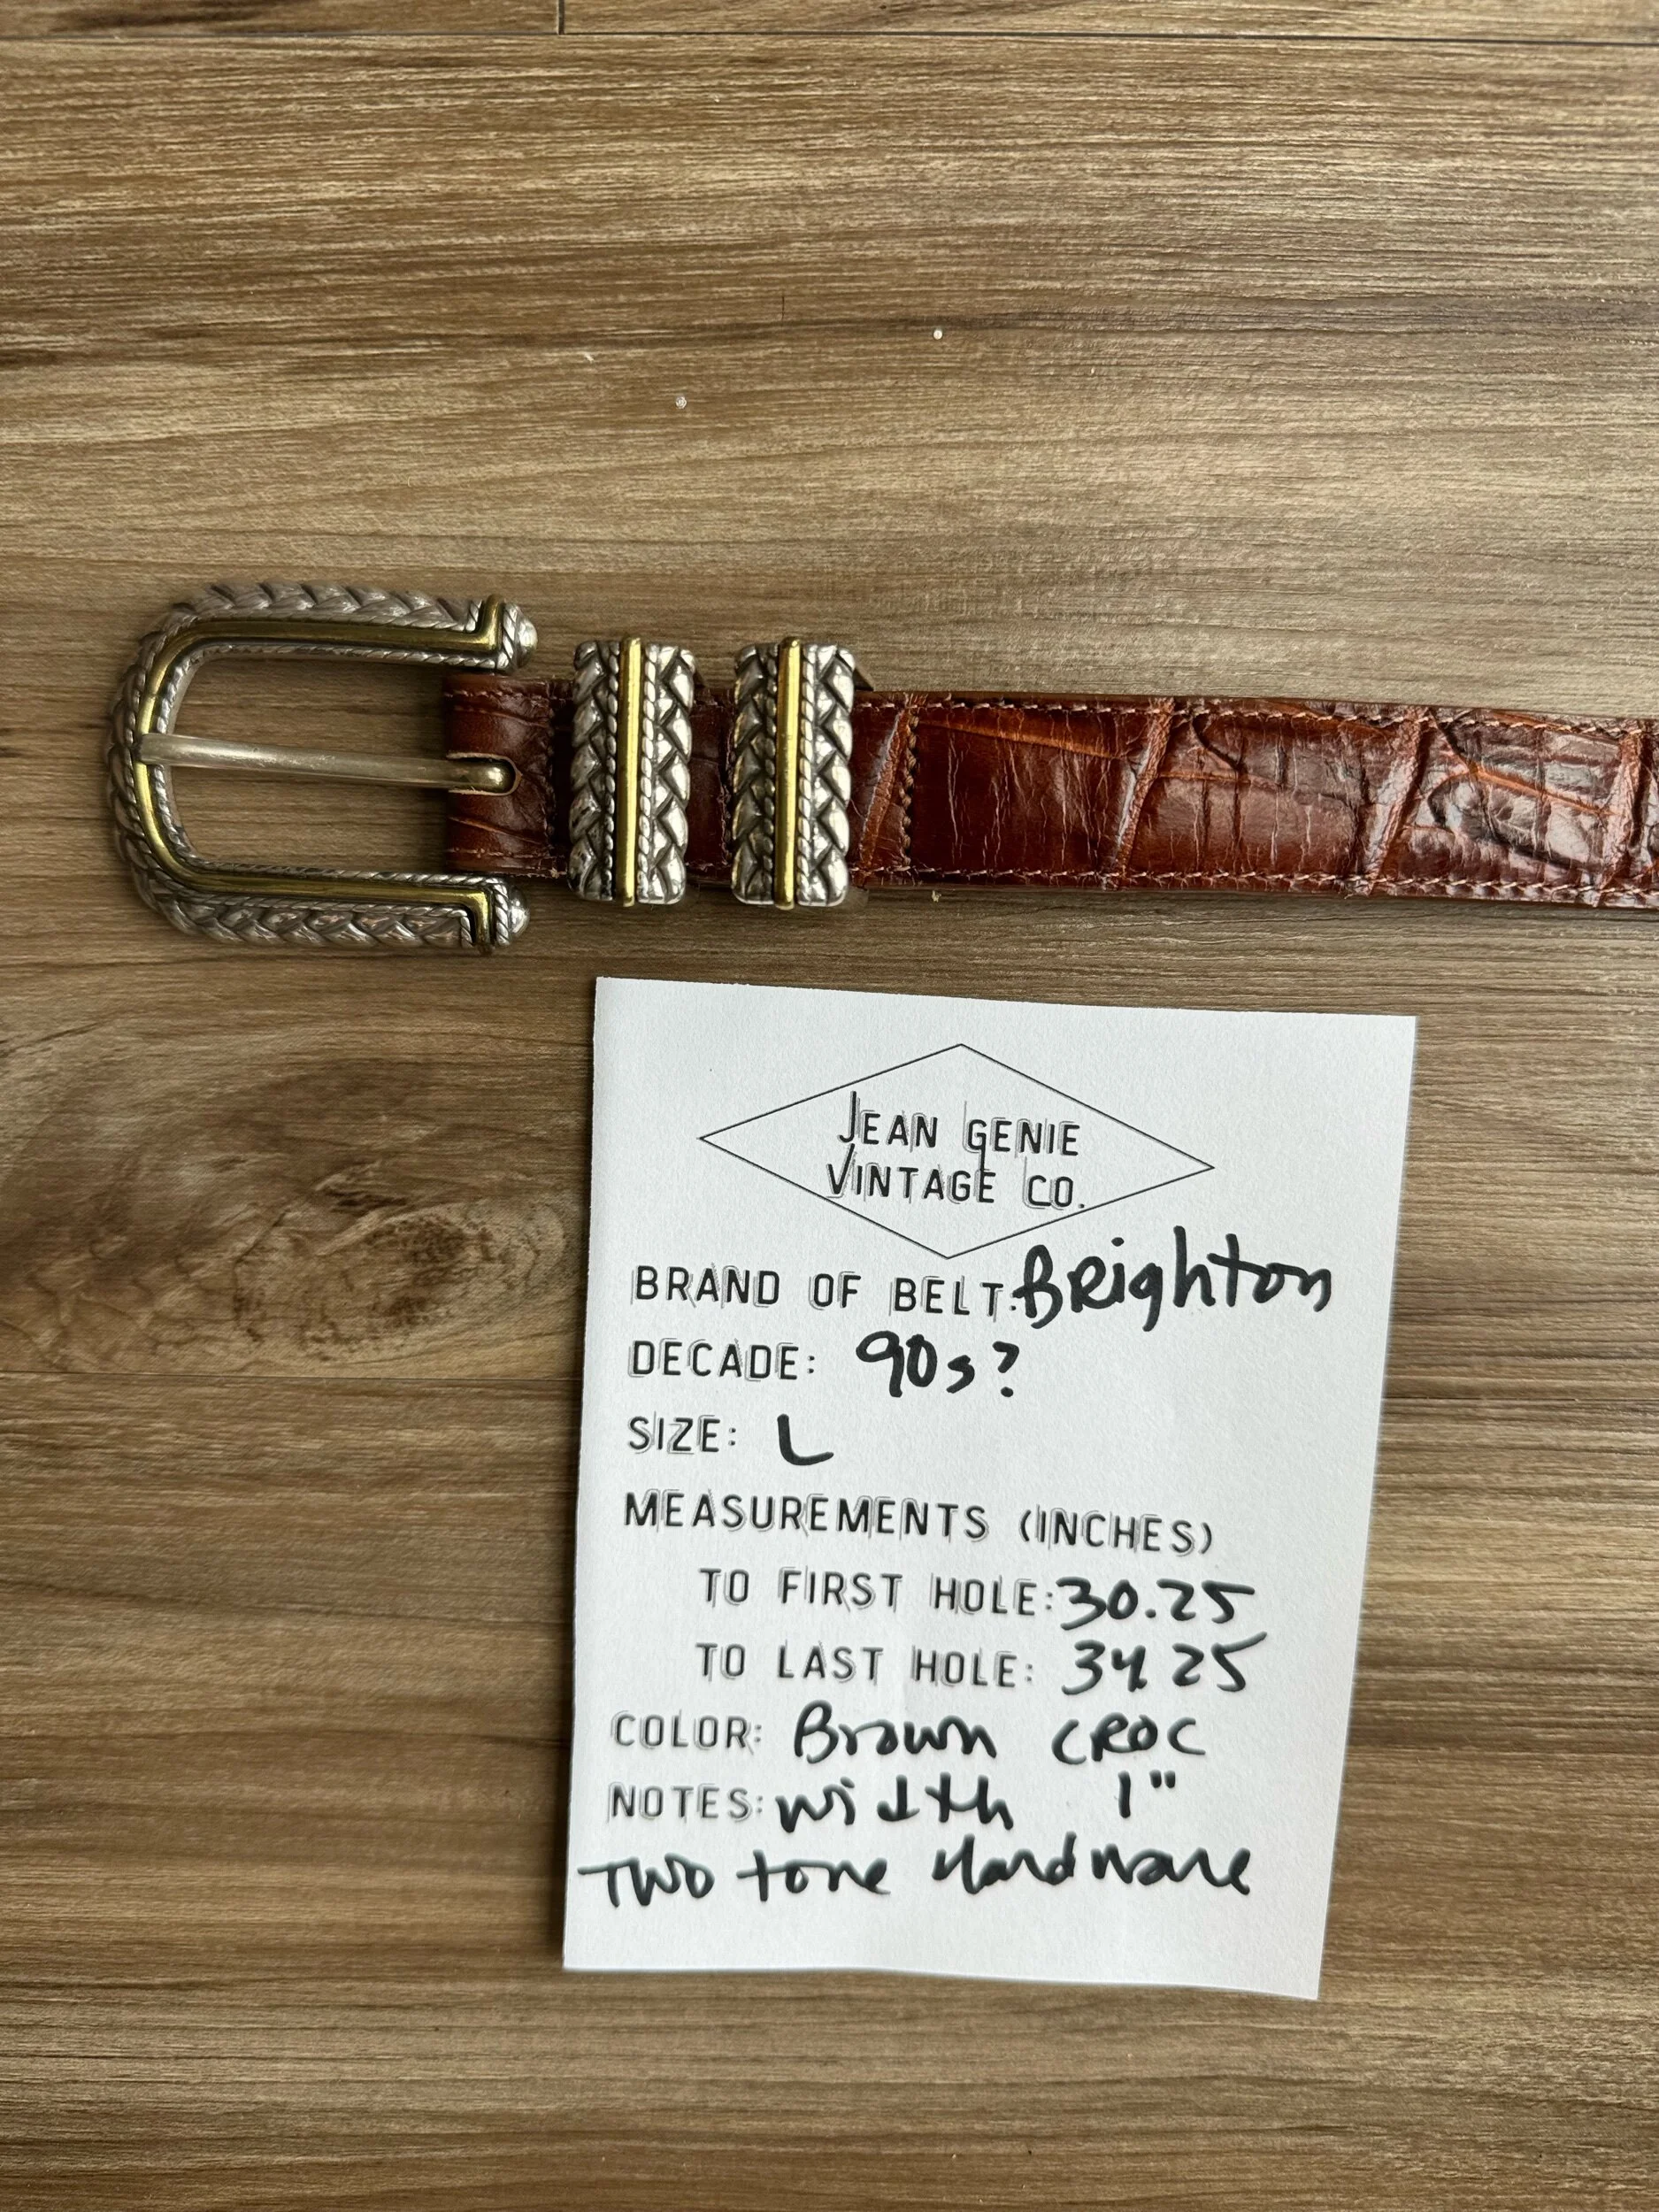 JEAN GENIE
VINTAGE CO.
BRAND OF BELT: BRighton
DECADE: 90s?
SIZE: L
MEASUREMENTS (INCHES)
TO FIRST HOLE: 30.25
TO LAST HOLE: 34.25
COLOR: Brown CROC
NOTES: width 1"
Two tone Hardware